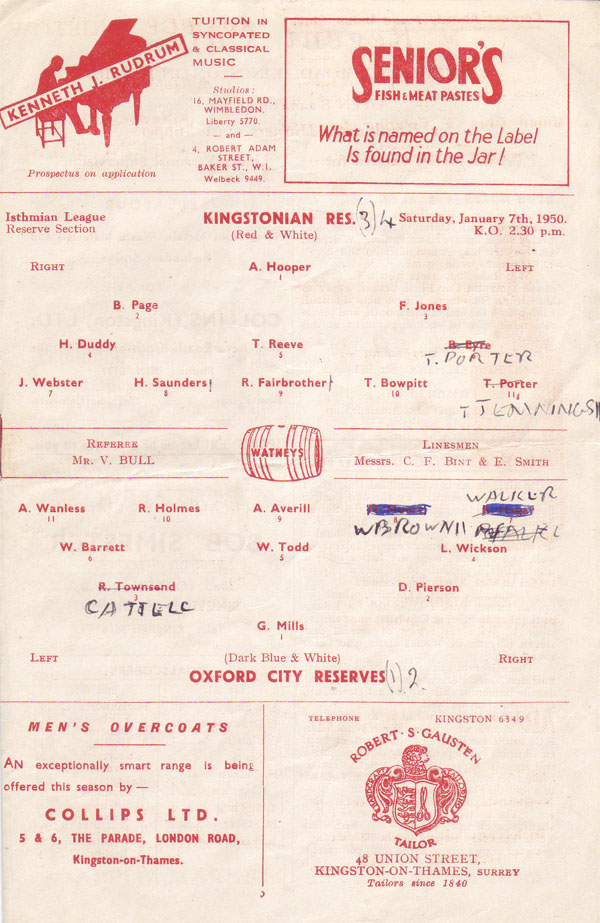 KENNETH J. RUDRUM
TUITION IN
SYNCOPATED
& CLASSICAL
MUSIC
Studios:
16, MAYFIELD RD.,
WIMBLEDON.
Liberty 5770.
— and —
4, ROBERT ADAM
STREET,
BAKER ST., W.I.
Welbeck 9449.
Prospectus on application
SENIOR'S
FISH & MEAT PASTES
What is named on the Label
Is found in the Jar!
Isthmian League
Reserve Section
KINGSTONIAN RES. (3) 4
(Red & White)
Saturday, January 7th, 1950.
K.O. 2.30 p.m.
RIGHT
A. Hooper
1
LEFT
B. Page
2
F. Jones
3
H. Duddy
4
T. Reeve
5
B. Eyre
T. PORTER
J. Webster
7
H. Saunders
8
R. Fairbrother
9
T. Bowpitt
10
T. Porter
11
T JENNINGS
REFEREE
MR. V. BULL
WATNEYS
LINESMEN
Messrs. C. F. BINT & E. SMITH
A. Wanless
11
R. Holmes
10
A. Averill
9
8
W BROWN
WALKER
W. Barrett
6
W. Todd
5
L. Wickson
4
R. Townsend
3
CATTELL
D. Pierson
2
G. Mills
1
LEFT
(Dark Blue & White)
RIGHT
OXFORD CITY RESERVES (1) 2
MEN'S OVERCOATS
AN exceptionally smart range is being
offered this season by —
COLLIPS LTD.
5 & 6, THE PARADE, LONDON ROAD,
Kingston-on-Thames.
TELEPHONE KINGSTON 6349
ROBERT · S · GAUSTEN
HANDCRAFT TAILORING
TAILOR
48 UNION STREET,
KINGSTON-ON-THAMES, SURREY
Tailors since 1840